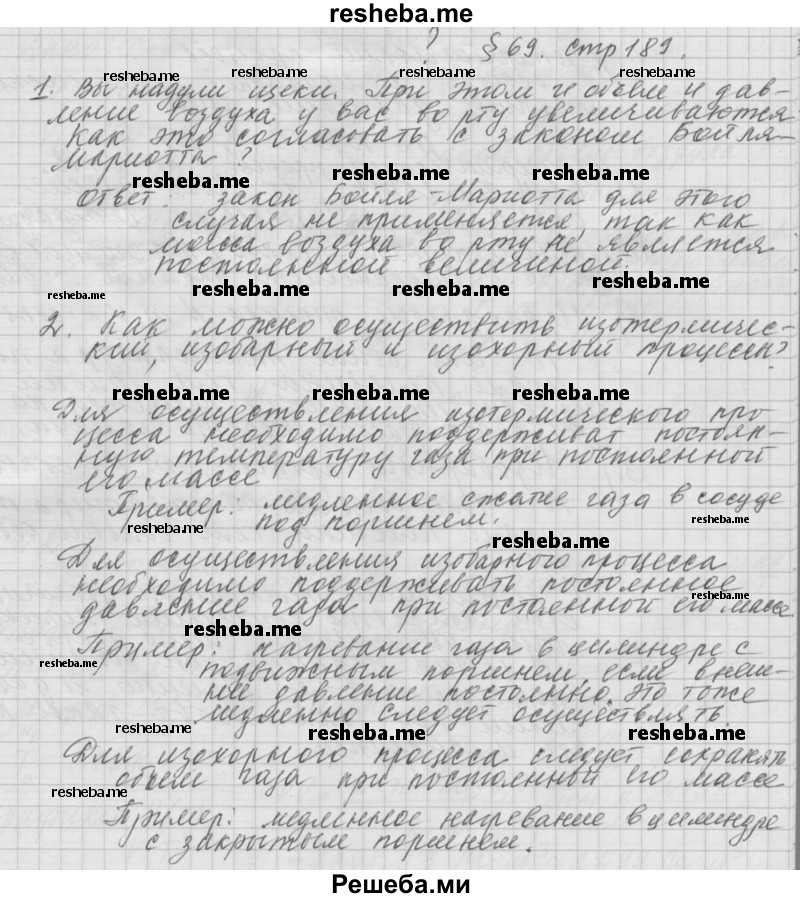 resheba.me
? § 69. стр 189.
resheba.me resheba.me resheba.me resheba.me
1. Вы надули щеки. При этом и объем и дав-
ление воздуха у вас во рту увеличиваются
Как это согласовать с законом Бойля-
Мариотта?
resheba.me resheba.me resheba.me
Ответ: закон Бойля-Мариотта для этого
случая не применяется, так как
масса воздуха во рту не является
постоянной величиной.
resheba.me resheba.me resheba.me resheba.me
2. Как можно осуществить изотермичес-
кий, изобарный и изохорный процессы?
resheba.me resheba.me resheba.me
Для осуществления изотермического про-
цесса необходимо поддерживат постоян-
ную температуру газа при постоянной
его массе
Пример: медленное сжатие газа в сосуде
под поршнем.
resheba.me resheba.me resheba.me
Для осуществления изобарного процесса
необходимо поддерживать постоянное
давление газа при постоянной его массе
resheba.me resheba.me
Пример: нагревание газа в цилиндре с
resheba.me
подвижным поршнем, если внеш-
нее давление постоянно. Это тоже
медленно следует осуществлять.
resheba.me resheba.me resheba.me
Для изохорного процесса следует сохранять
объем газа при постоянной его массе
resheba.me
Пример: медленное нагревание в цилиндре
с закрытым поршнем.
Решеба.ми